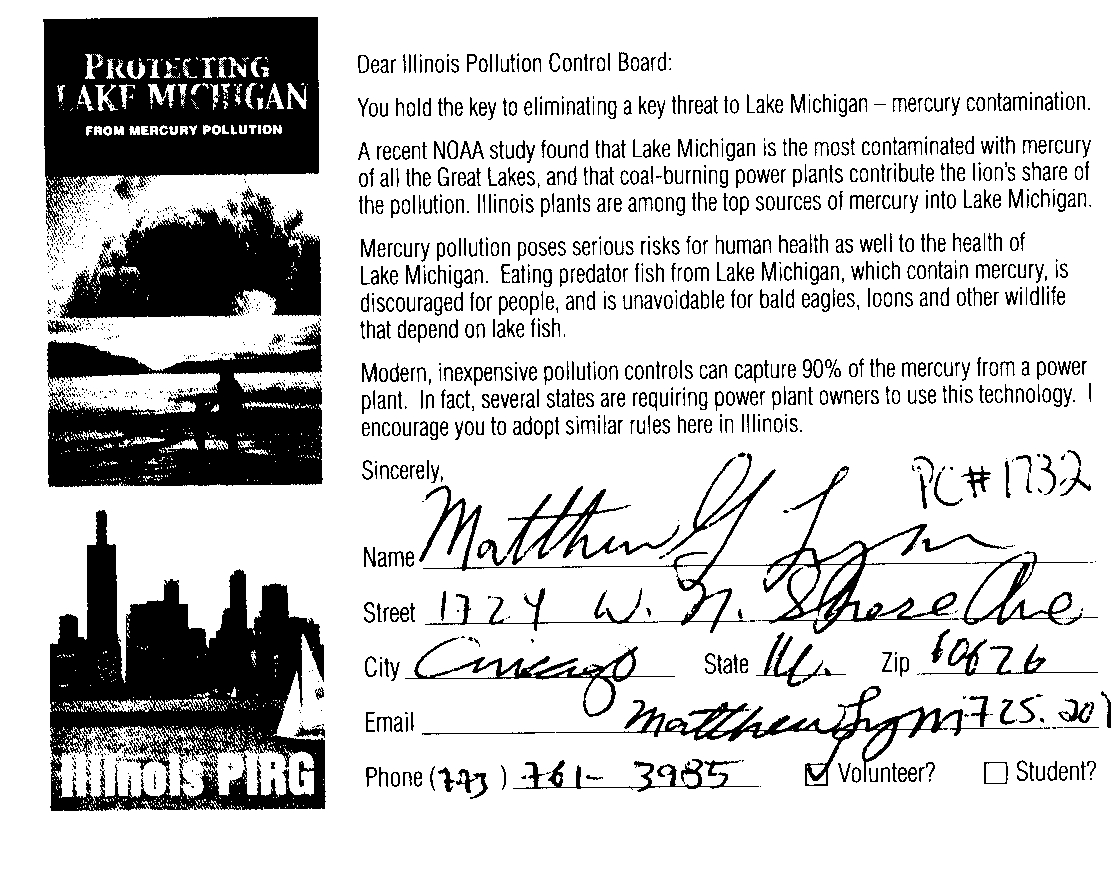 PROTECTING
LAKE MICHIGAN
FROM MERCURY POLLUTION
Illinois PIRG
Dear Illinois Pollution Control Board:
You hold the key to eliminating a key threat to Lake Michigan – mercury contamination.
A recent NOAA study found that Lake Michigan is the most contaminated with mercury
of all the Great Lakes, and that coal-burning power plants contribute the lion's share of
the pollution. Illinois plants are among the top sources of mercury into Lake Michigan.
Mercury pollution poses serious risks for human health as well to the health of
Lake Michigan. Eating predator fish from Lake Michigan, which contain mercury, is
discouraged for people, and is unavoidable for bald eagles, loons and other wildlife
that depend on lake fish.
Modern, inexpensive pollution controls can capture 90% of the mercury from a power
plant. In fact, several states are requiring power plant owners to use this technology. I
encourage you to adopt similar rules here in Illinois.
Sincerely,
PC#1732
Name Matthew G
Street 1724 W. N. Shore Ave
City Chicago State Ill. Zip 60626
Email Matthew
Phone (773) 761-3985 Volunteer? Student?